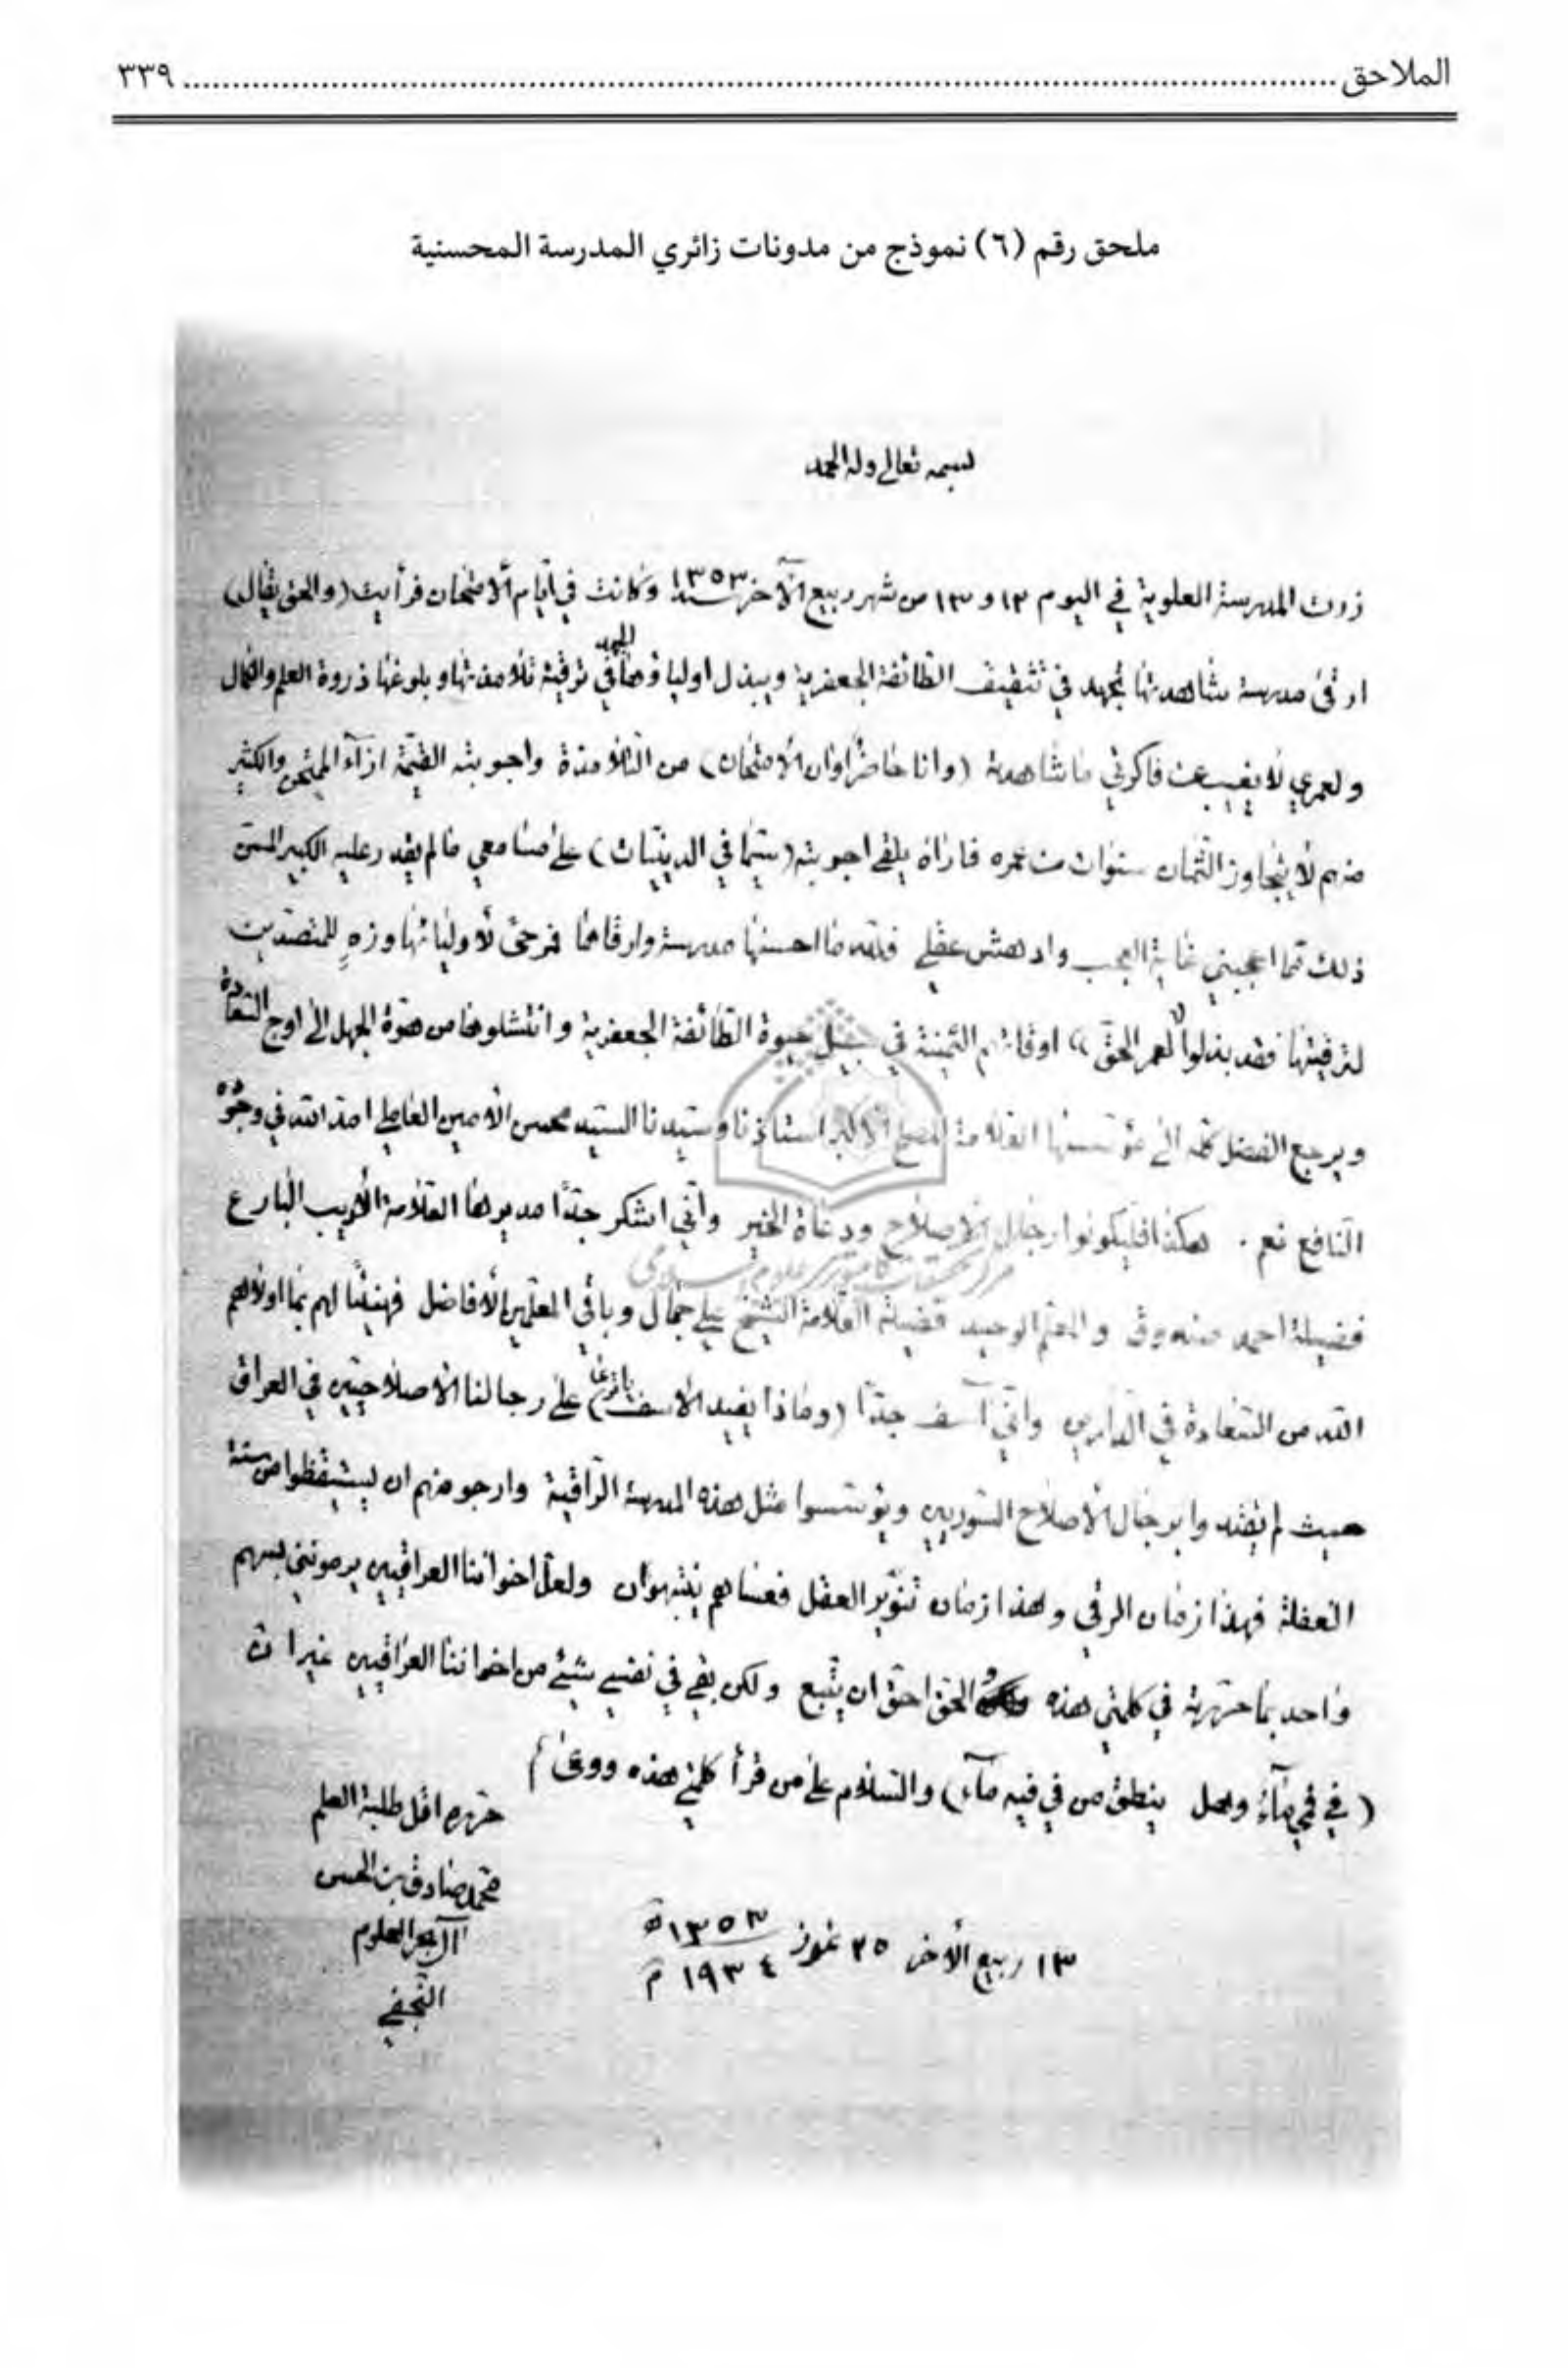 الملاحق ........ ٣٣٩
ملحق رقم (٦) نموذج من مدونات زائري المدرسة المحسنية
بسمه تعالى وله الحمد
زرت المدرسة العلوية في اليوم ١٢ و ١٣ من شهر ربيع الآخر سنة ١٣٥٣ وكانت في أيام الامتحان فرأيت (والحق يقال)
ارقى مدرسة شاهدتها تجهد في تثقيف الطائفة الجعفرية ويبذل اولياؤها الجهد في ترقية تلامذتها وبلوغها ذروة العلم والكمال
ولعمري لا يغيب عن فاكرتي ما شاهدته (وانا حاضر اوان الامتحان) من التلامذة واجوبته القيمة ازآء الممتحن والكثير
منهم لا يتجاوز الثمان سنوات من عمره فاراه يلقي اجوبته (سيما في الدينيات) على مسامعي ما لم يقدر عليه الكبير المسن
ذلك مما اعجبني غاية العجب وادهش عقلي فلله ما احسنها مدرسة وارقاها فمرحى لأوليائها وزهٍ للمتصدين
لترقيتها فقد بذلوا (لعمر الحق) اوقاتهم الثمينة في سبيل حيوة الطائفة الجعفرية وانتشلوها من هوّة الجهل الى اوج السعادة
ويرجع الفضل كله الى مؤسسها العلامة المصلح الأكبر استاذنا وسيدنا السيد محسن الأمين العاملي امد الله في وجوده
النافع نعم . هكذا فليكونوا رجال الاصلاح ودعاة الخير وانّي اشكر جدًا مديرها العلامة الأديب البارع
فضيلة احمد صندوق والمعلم الوحيد فضيلة العلامة الشيخ علي جمال وباقي المعلمين الأفاضل فهنيئًا لهم بما اولاهم
الله من السعادة في الدارين وانّي آسف جدًا (وماذا يفيد الأسف) على رجالنا الاصلاحيين في العراق
حيث لم يقتدوا برجال الاصلاح السوريين ويؤسسوا مثل هذه المدرسة الراقية وارجو منهم ان يستيقظوا من سنة
الغفلة فهذا زمان الرقي وهذا زمان تنوّر العقل فعساهم ينتبهون ولعل اخواننا العراقيين يرمونني بسهم
واحد بما حررته في كلمتي هذه والحق احق ان يتبع ولكن بقي في نفسي شيئ من اخواننا العراقيين غير ان
(في فمي مآء وهل ينطق من في فيه مآء) والسلام على من قرأ كلمتي هذه ووعى
حرره اقل طلبة العلم
محمد صادق بن الحسن
آل بحر العلوم
النجفي
١٣ ربيع الأخر ٢٥ تموز ١٣٥٣ ه
١٩٣٤ م
مركز تحقيقات كامپيوتري علوم اسلامي